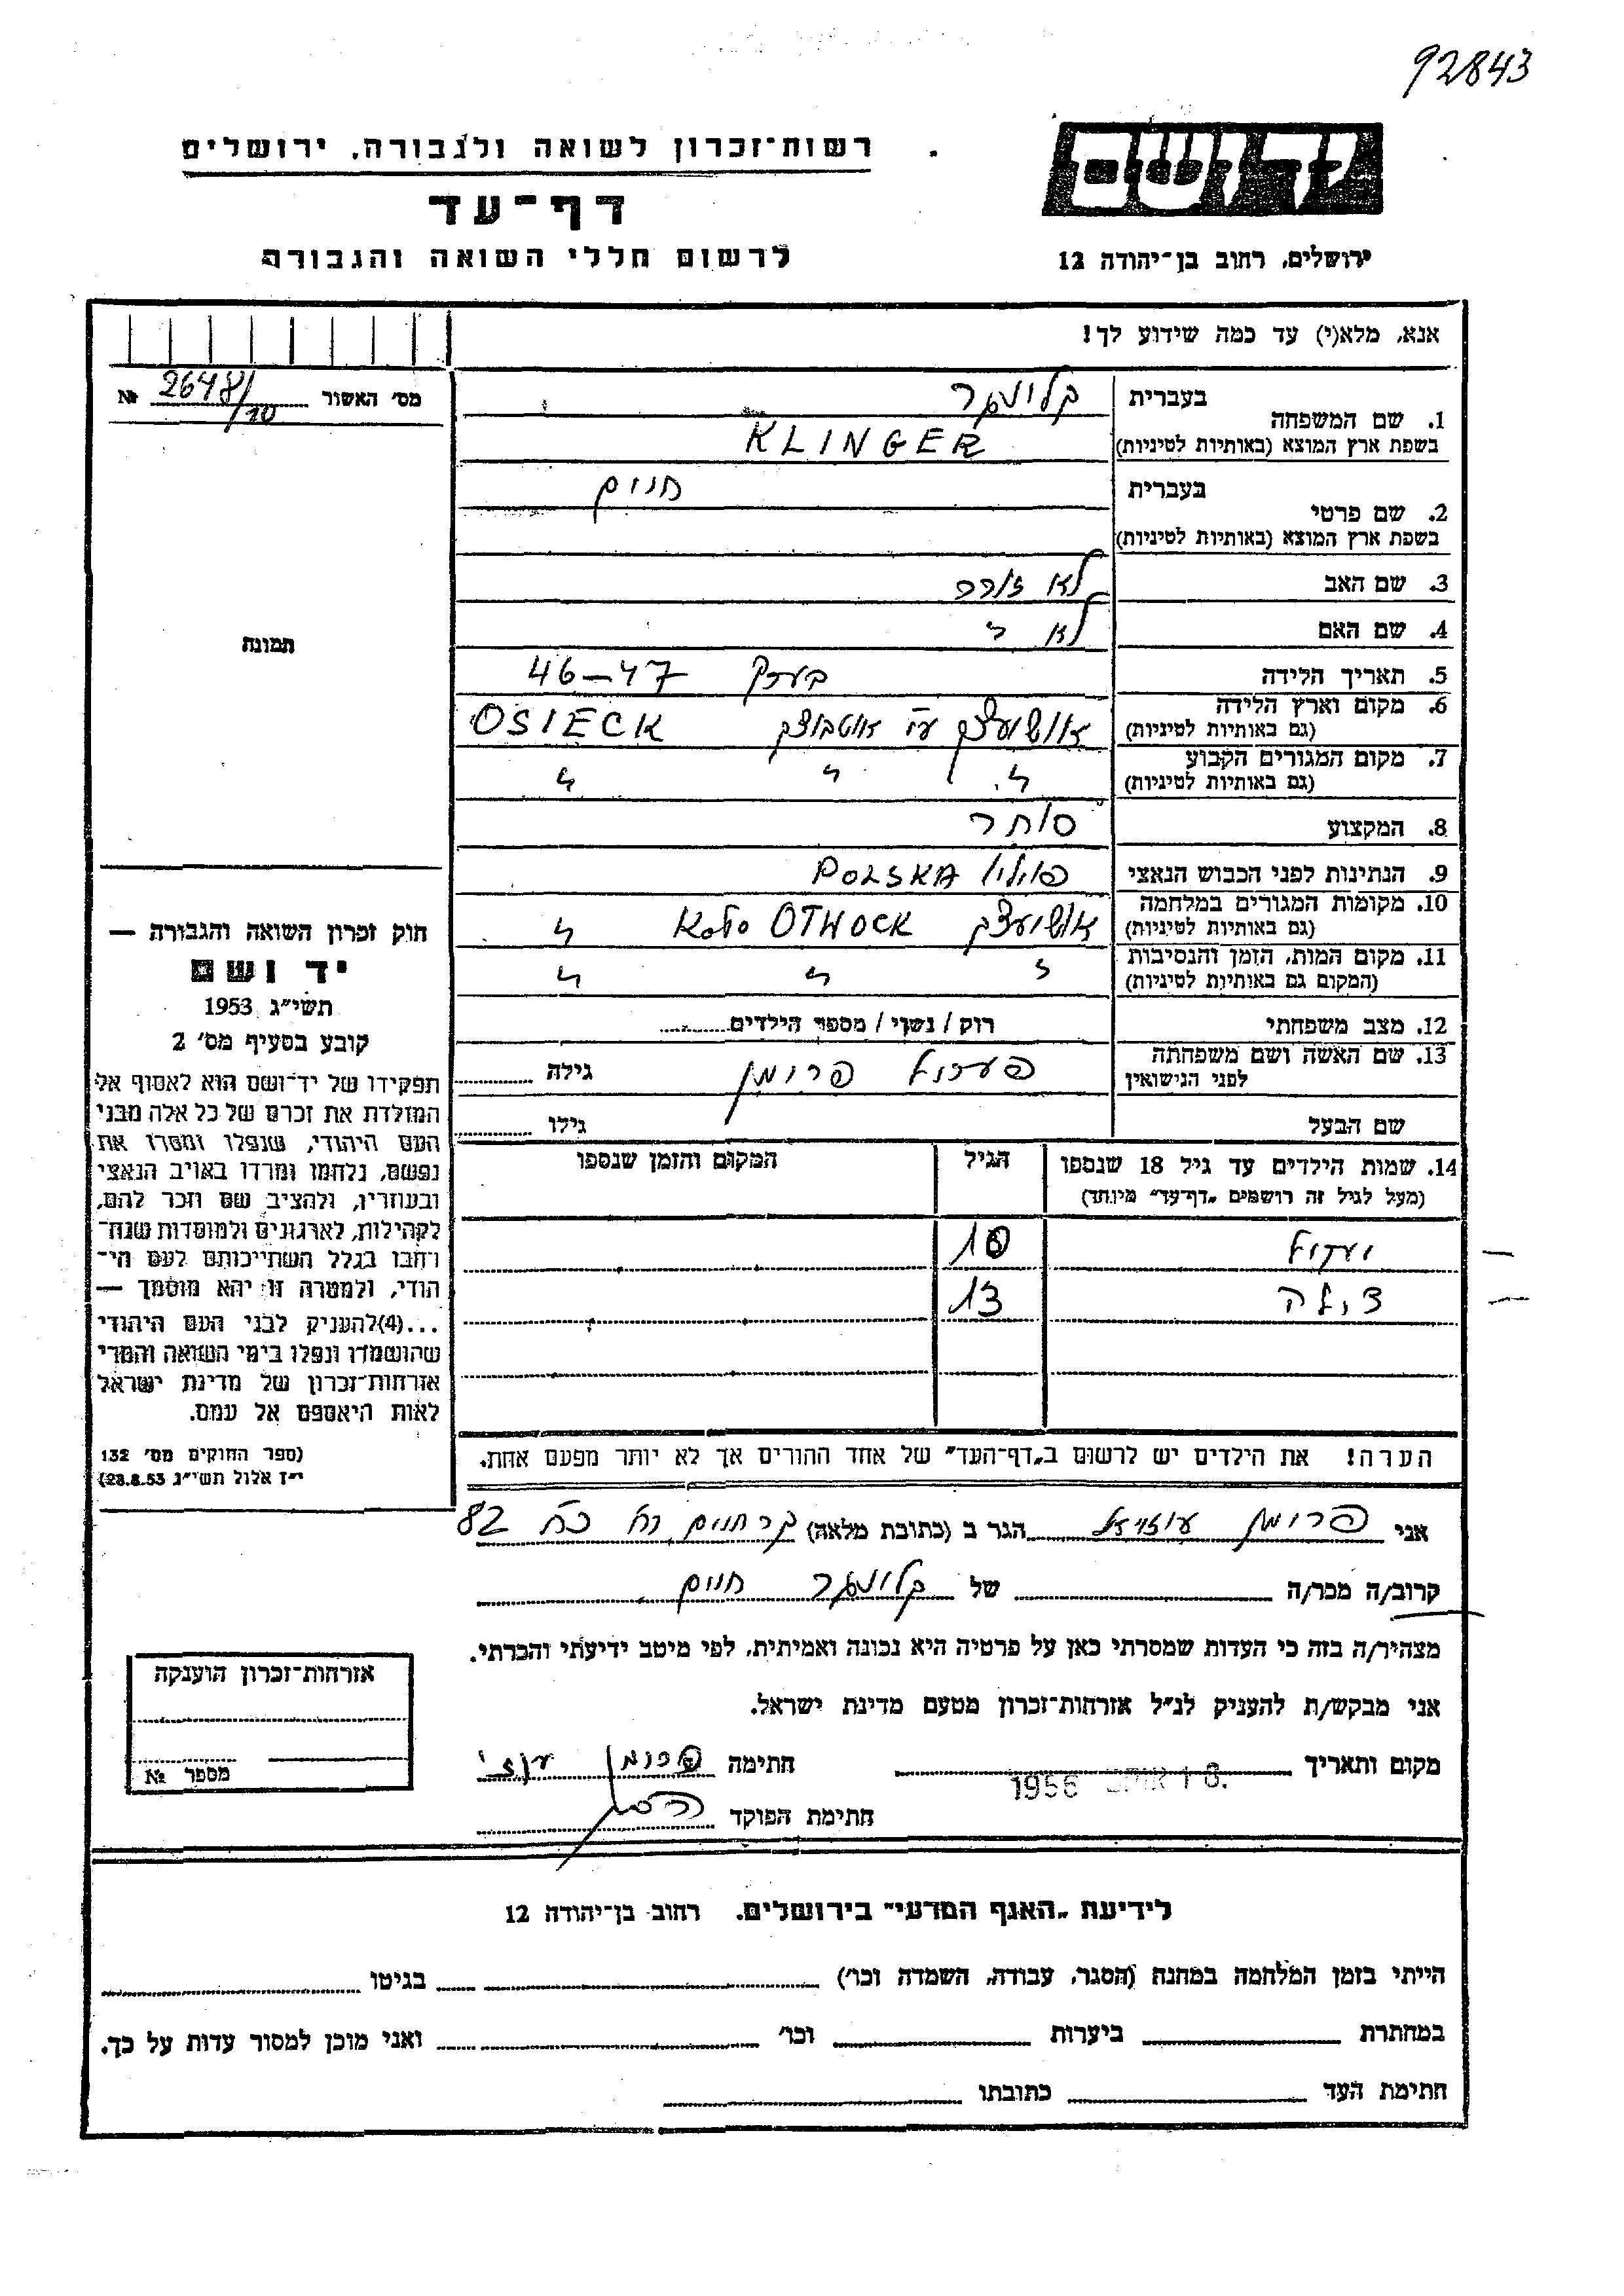 92843
יד ושם
רשות-זכרון לשואה ולגבורה, ירושלים
דף-עד
לרשום חללי השואה והגבורה
ירושלים, רחוב בן-יהודה 12
אנא, מלא(י) עד כמה שידוע לך!
מס' האשור 2648/10 №
תמונה
1. שם המשפחה
בעברית קלינגר
בשפת ארץ המוצא (באותיות לטיניות) KLINGER
2. שם פרטי
בעברית חיים
בשפת ארץ המוצא (באותיות לטיניות)
3. שם האב לא זוכר
4. שם האם לא "
5. תאריך הלידה בערך 46-47
6. מקום וארץ הלידה
(גם באותיות לטיניות) על יד אוטבוצק OSIECK
7. מקום המגורים הקבוע
(גם באותיות לטיניות) " " "
8. המקצוע סוחר
9. הנתינות לפני הכבוש הנאצי פולין POLSKA
10. מקומות המגורים במלחמה
(גם באותיות לטיניות) KOŁO OTWOCK "
11. מקום המות, הזמן והנסיבות
(המקום גם באותיות לטיניות) " " "
12. מצב משפחתי רוק / נשוי / מספר הילדים
13. שם האשה ושם משפחתה
לפני הנישואין פרומן גילה
שם הבעל גילו
14. שמות הילדים עד גיל 18 שנספו
(מעל לגיל זה רושמים "דף-עד" מיוחד)
הגיל
המקום והזמן שנספו
10
13
הערה! את הילדים יש לרשום ב"דף-העד" של אחד ההורים אך לא יותר מפעם אחת.
חוק זכרון השואה והגבורה —
יד ושם
תשי"ג 1953
קובע בסעיף מס' 2
תפקידו של יד-ושם הוא לאסוף אל
המולדת את זכרם של כל אלה מבני
העם היהודי, שנפלו ומסרו את
נפשם, נלחמו ומרדו באויב הנאצי
ובעוזריו, ולהציב שם וזכר להם,
לקהילות, לארגונים ולמוסדות שנח-
רבו בגלל השתייכותם לעם הי-
הודי, ולמטרה זו יהא מוסמך —
...(4)להעניק לבני העם היהודי
שהושמדו ונפלו בימי השואה והמרי
אזרחות-זכרון של מדינת ישראל
לאות היאספם אל עמם.
(ספר החוקים מס' 132
י"ז אלול תשי"ג 28.8.53)
אני פרומן עוזיאל הגר ב (כתובת מלאה) קר חיים 82
קרוב/ה מכר/ה של קלינגר חיים
מצהיר/ה בזה כי העדות שמסרתי כאן על פרטיה היא נכונה ואמיתית, לפי מיטב ידיעתי והכרתי.
אני מבקש/ת להעניק לנ"ל אזרחות-זכרון מטעם מדינת ישראל.
מקום ותאריך 1956 חתימה פרומן
חתימת הפוקד
אזרחות-זכרון הוענקה
מספר №
לידיעת "האגף המדעי" בירושלים, רחוב בן-יהודה 12
הייתי בזמן המלחמה במחנה (הסגר, עבודה, השמדה וכו') בגיטו
במחתרת ביערות וכו' ואני מוכן למסור עדות על כך.
חתימת העד כתובתו